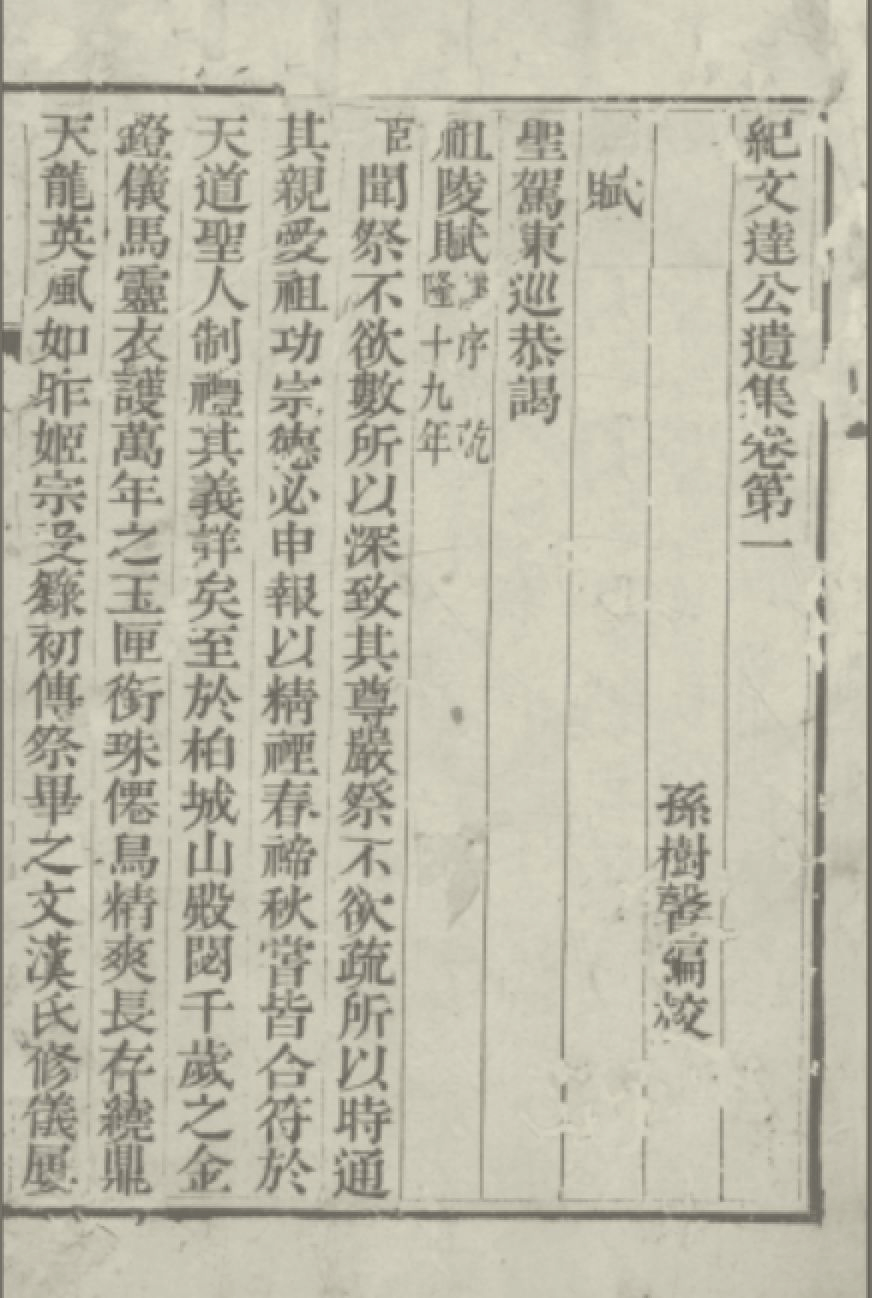 紀文達公遺集卷第一
孫樹馨編校
賦
聖駕東巡恭謁
祖陵賦 并序 乾隆十九年
臣聞祭不欲數所以深致其尊嚴祭不欲疏所以時通
其親愛祖功宗德必申報以精禋春禘秋嘗皆合符於
天道聖人制禮其義詳矣至於柏城山殿閟千歲之金
鐙儀馬靈衣護萬年之玉匣銜珠僊鳥精爽長存繞鼎
天龍英風如昨姬宗受籙初傳祭畢之文漢氏修儀屢